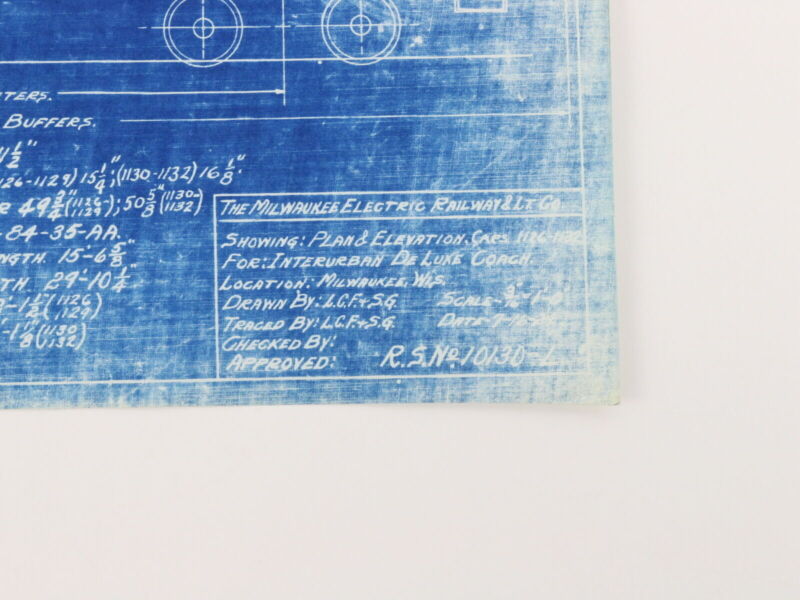 TERS.
BUFFERS.
1/2"
1126-1129) 15 1/4"; (1130-1132) 16 1/8"
R 49 3/4" (1126-1129); 50 5/8" (1130-1132)
-84-35-AA.
NGTH. 15'-6 5/8"
TH 29'-10 1/4"
'-1 1/2" (1126 1129)
'-1 1/8" (1130 1132)
THE MILWAUKEE ELECTRIC RAILWAY & LT. CO.
SHOWING: PLAN & ELEVATION. CARS 1126-
FOR: INTERURBAN DE LUXE COACH.
LOCATION: MILWAUKEE, WIS.
DRAWN BY: L.C.F. & S.G. SCALE-
TRACED BY: L.C.F. & S.G. DATE-
CHECKED BY:
APPROVED: R.S. NO. 10130-